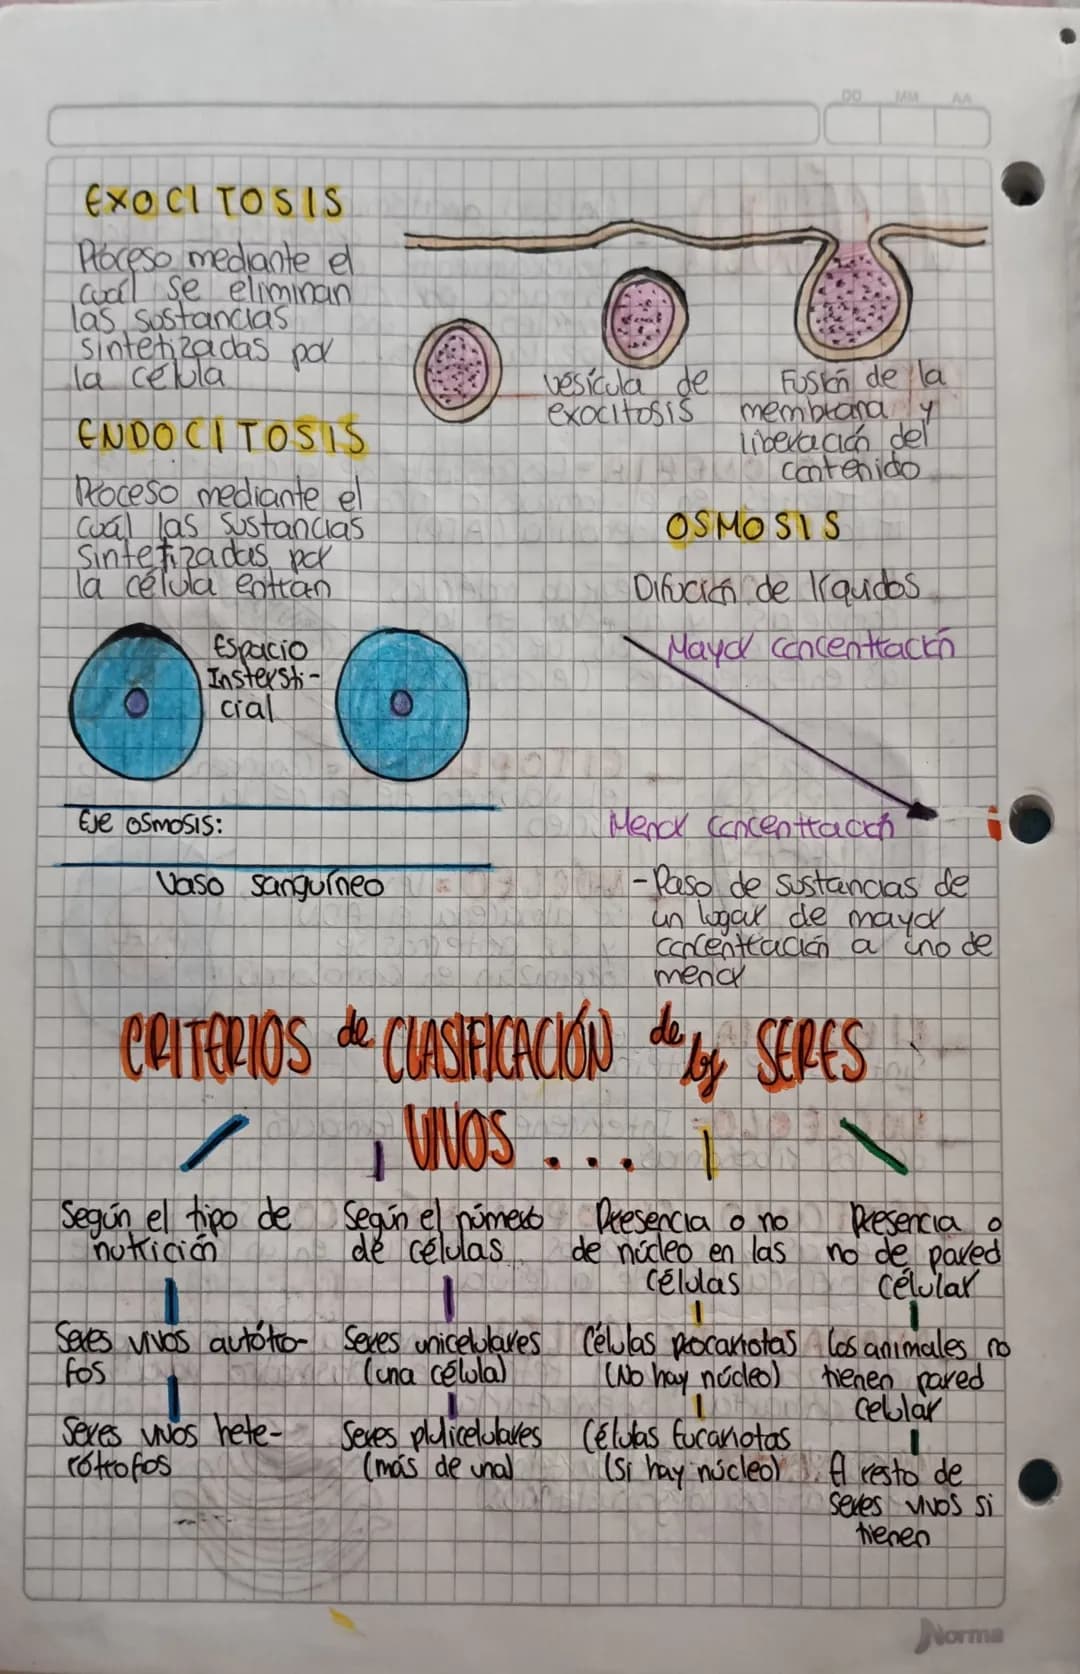 DD MM AA
EXOCITOSIS
Proceso mediante el
cuál se eliminan
las sustancias
sintetizadas por
la célula
vesícula de
exocitosis
Fusión de la
membrana y
liberación del
contenido
ENDOCITOSIS
Proceso mediante el
cuál las sustancias
sintetizadas por
la célula entran
Espacio
Instersti-
cial
Eje osmosis:
Vaso sanguíneo
OSMOSIS
Difución de líquidos
Mayor concentración
Menor concentración
-Paso de sustancias de
un lugar de mayor
concentración a uno de
menor
CRITERIOS de CLASIFICACIÓN de los SERES
VIVOS ...
Según el tipo de
nutrición
Seres vivos autótro-
fos
Seres vivos hete-
rótrofos
Según el número
de células
Seres unicelulares
(una célula)
Seres plulicelulares
(más de una)
Presencia o no
de núcleo en las
células
Células procariotas
(No hay núcleo)
Células Eucariotas
(Si hay núcleo)
Presencia o
no de pared
célular
Los animales no
tienen pared
celular
El resto de
seres vivos si
tienen
Norma